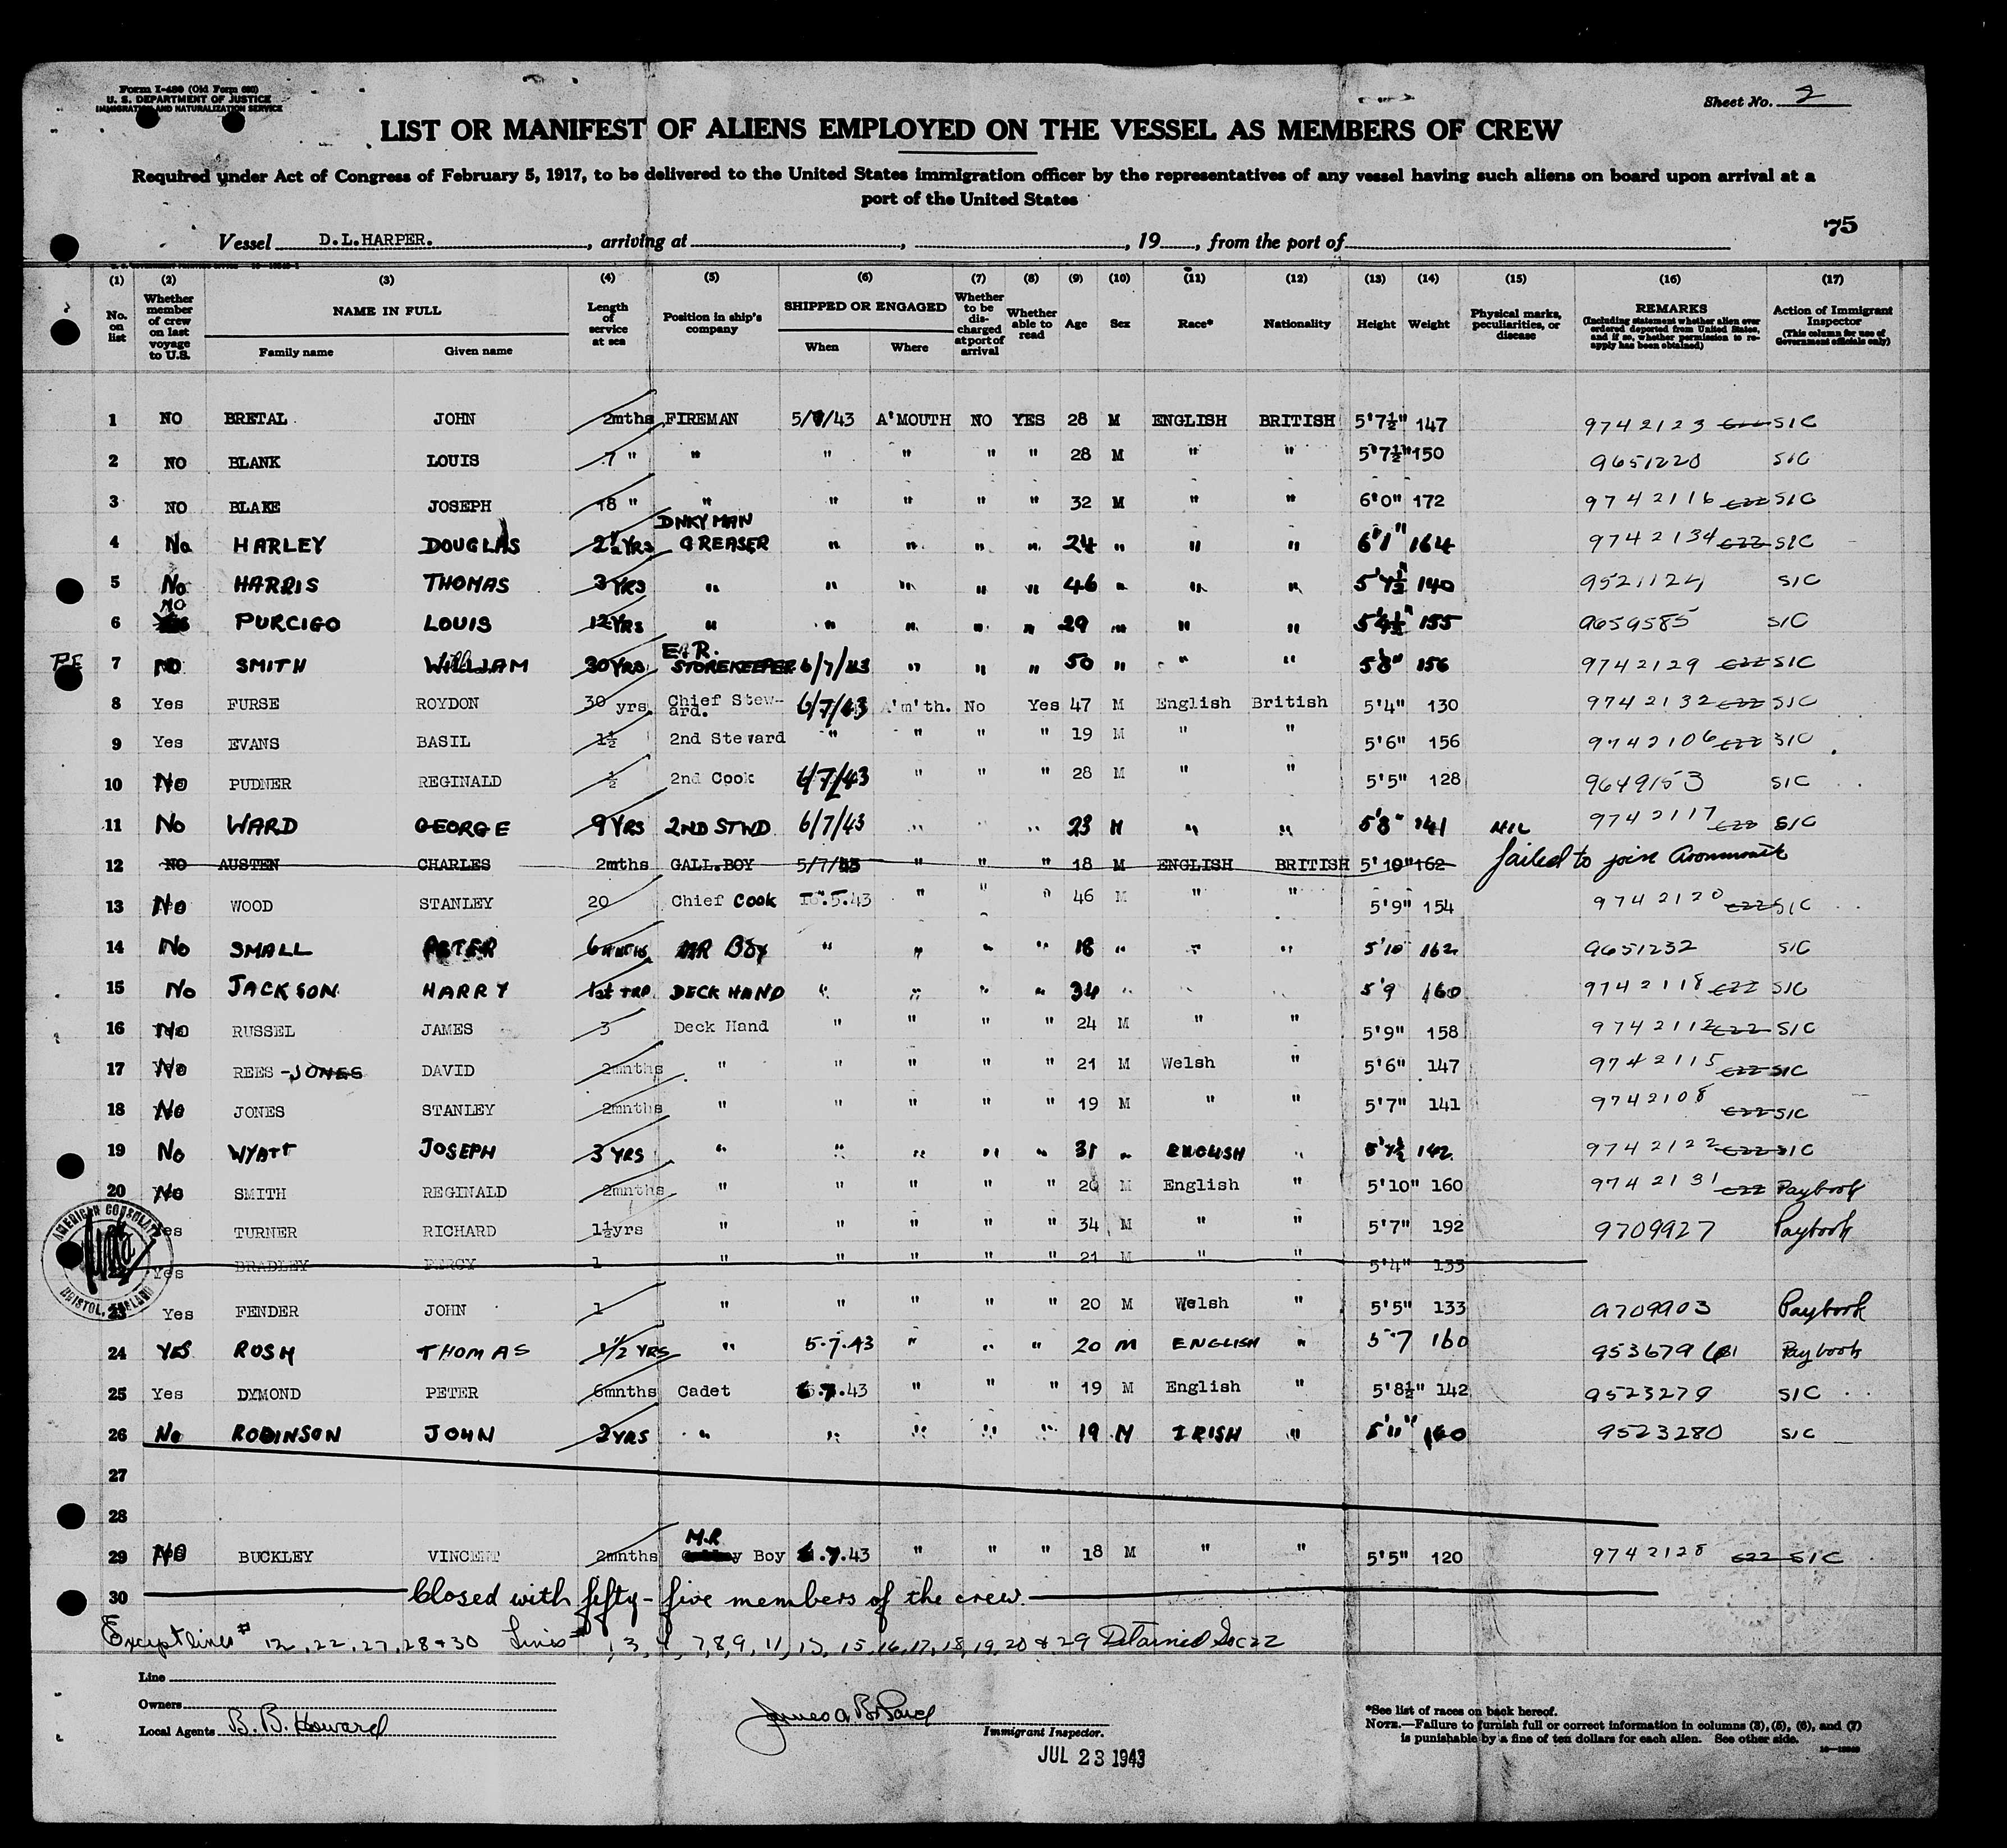 Form I-489 (Old Form 689)
U. S. DEPARTMENT OF JUSTICE
IMMIGRATION AND NATURALIZATION SERVICE
Sheet No. 2
LIST OR MANIFEST OF ALIENS EMPLOYED ON THE VESSEL AS MEMBERS OF CREW
Required under Act of Congress of February 5, 1917, to be delivered to the United States immigration officer by the representatives of any vessel having such aliens on board upon arrival at a
port of the United States
75
Vessel D.L.HARPER. , arriving at , , 19 , from the port of
(1) (2) (3) (4) (5) (6) (7) (8) (9) (10) (11) (12) (13) (14) (15) (16) (17)
No. on list Whether member of crew on last voyage to U.S. NAME IN FULL Family name Given name Length of service at sea Position in ship's company SHIPPED OR ENGAGED When Where Whether to be discharged at port of arrival Whether able to read Age Sex Race* Nationality Height Weight Physical marks, peculiarities, or disease REMARKS (Including statement whether alien ever ordered deported from United States, and if so, whether permission to re-apply has been obtained) Action of Immigrant Inspector (This column for use of Government officials only)
1 NO BRETAL JOHN 2mths FIREMAN 5/7/43 A'MOUTH NO YES 28 M ENGLISH BRITISH 5'7½" 147 9742123 622 S/C
2 NO BLANK LOUIS 7 " " " " " " 28 M " " 5'7½" 150 9651220 S/C
3 NO BLAKE JOSEPH 18 " " " " " " 32 M " " 6'0" 172 9742116 622 S/C
DNKYMAN
4 No HARLEY DOUGLAS 2½ YRS GREASER " " " " 24 " " " 6'1" 164 9742134 622 S/C
5 No HARRIS THOMAS 3 YRS " " " " " 46 " " " 5'7½" 140 9521124 S/C
6 NO PURCIGO LOUIS 12 YRS " " " " " 29 " " " 5'4½" 155 9659585 S/C
E.R.
PE 7 NO SMITH WILLIAM 30 YRS STOREKEEPER 6/7/43 " " " 50 " " " 5'8" 156 9742129 622 S/C
8 Yes FURSE ROYDON 30 yrs Chief Stew-ard. 6/7/43 A'm'th. No Yes 47 M English British 5'4" 130 9742132 622 S/C
9 Yes EVANS BASIL 1½ 2nd Steward " " " " 19 M " " 5'6" 156 9742106 622 S/C
10 No PUDNER REGINALD ½ 2nd Cook 6/7/43 " " " 28 M " " 5'5" 128 9649153 S/C
11 No WARD GEORGE 9 YRS 2ND STWD 6/7/43 " " 23 M " " 5'8" 141 NIL 9742117 622 S/C
12 NO AUSTEN CHARLES 2mths GALL.BOY 5/7/43 " " " 18 M ENGLISH BRITISH 5'10" 162 failed to join Avonmouth
13 No WOOD STANLEY 20 Chief Cook 5.43 " " " 46 M " " 5'9" 154 9742120 622 S/C
14 No SMALL PETER 6 MNTHS MR BOY " " " " 18 " " " 5'10 162 9651232 S/C
15 No JACKSON HARRY 1st TRP DECK HAND " " " " 34 " 5'9 160 9742118 622 S/C
16 No RUSSEL JAMES 3 Deck Hand " " " " 24 M " " 5'9" 158 9742112 622 S/C
17 No REES -JONES DAVID 2mnths " " " " " 21 M Welsh " 5'6" 147 9742115 622 S/C
18 No JONES STANLEY 2mnths " " " " " 19 M " " 5'7" 141 9742108 622 S/C
19 No WYATT JOSEPH 3 YRS " " " " " 31 " ENGLISH " 5'7½ 142 9742122 622 S/C
20 No SMITH REGINALD 2mnths " " " " " 20 M English " 5'10" 160 9742131 622 Paybook
AMERICAN CONSULATE BRISTOL, ENGLAND
Yes TURNER RICHARD 1½yrs " " " " " 34 M " " 5'7" 192 9709927 Paybook
22 Yes BRADLEY PERCY 1 " " " " " 21 M " " 5'4" 133
23 Yes FENDER JOHN 1 " " " " " 20 M Welsh " 5'5" 133 9709903 Paybook
24 YES ROSH THOMAS 1½ YRS " 5.7.43 " " " 20 M ENGLISH " 5-7 160 9536796 Paybook
25 Yes DYMOND PETER 6mnths Cadet 6.7.43 " " " 19 M English " 5'8½" 142 9523279 S/C
26 No ROBINSON JOHN 2 YRS " " " " " 19 M IRISH " 5'11" 160 9523280 S/C
27
28
M.R
29 NO BUCKLEY VINCENT 2mnths Boy 6.7.43 " " " 18 M " " 5'5" 120 9742128 622 S/C
30 Closed with fifty-five members of the crew
Except lines # 12, 22, 27, 28 & 30 Lines # 1, 3, 4, 7, 8, 9, 11, 13, 15, 16, 17, 18, 19, 20 & 29 Detained
Line
Owners
Local Agents B. B. Howard
Immigrant Inspector.
JUL 23 1943
*See list of races on back hereof.
NOTE.—Failure to furnish full or correct information in columns (3), (5), (6), and (7)
is punishable by a fine of ten dollars for each alien. See other side.